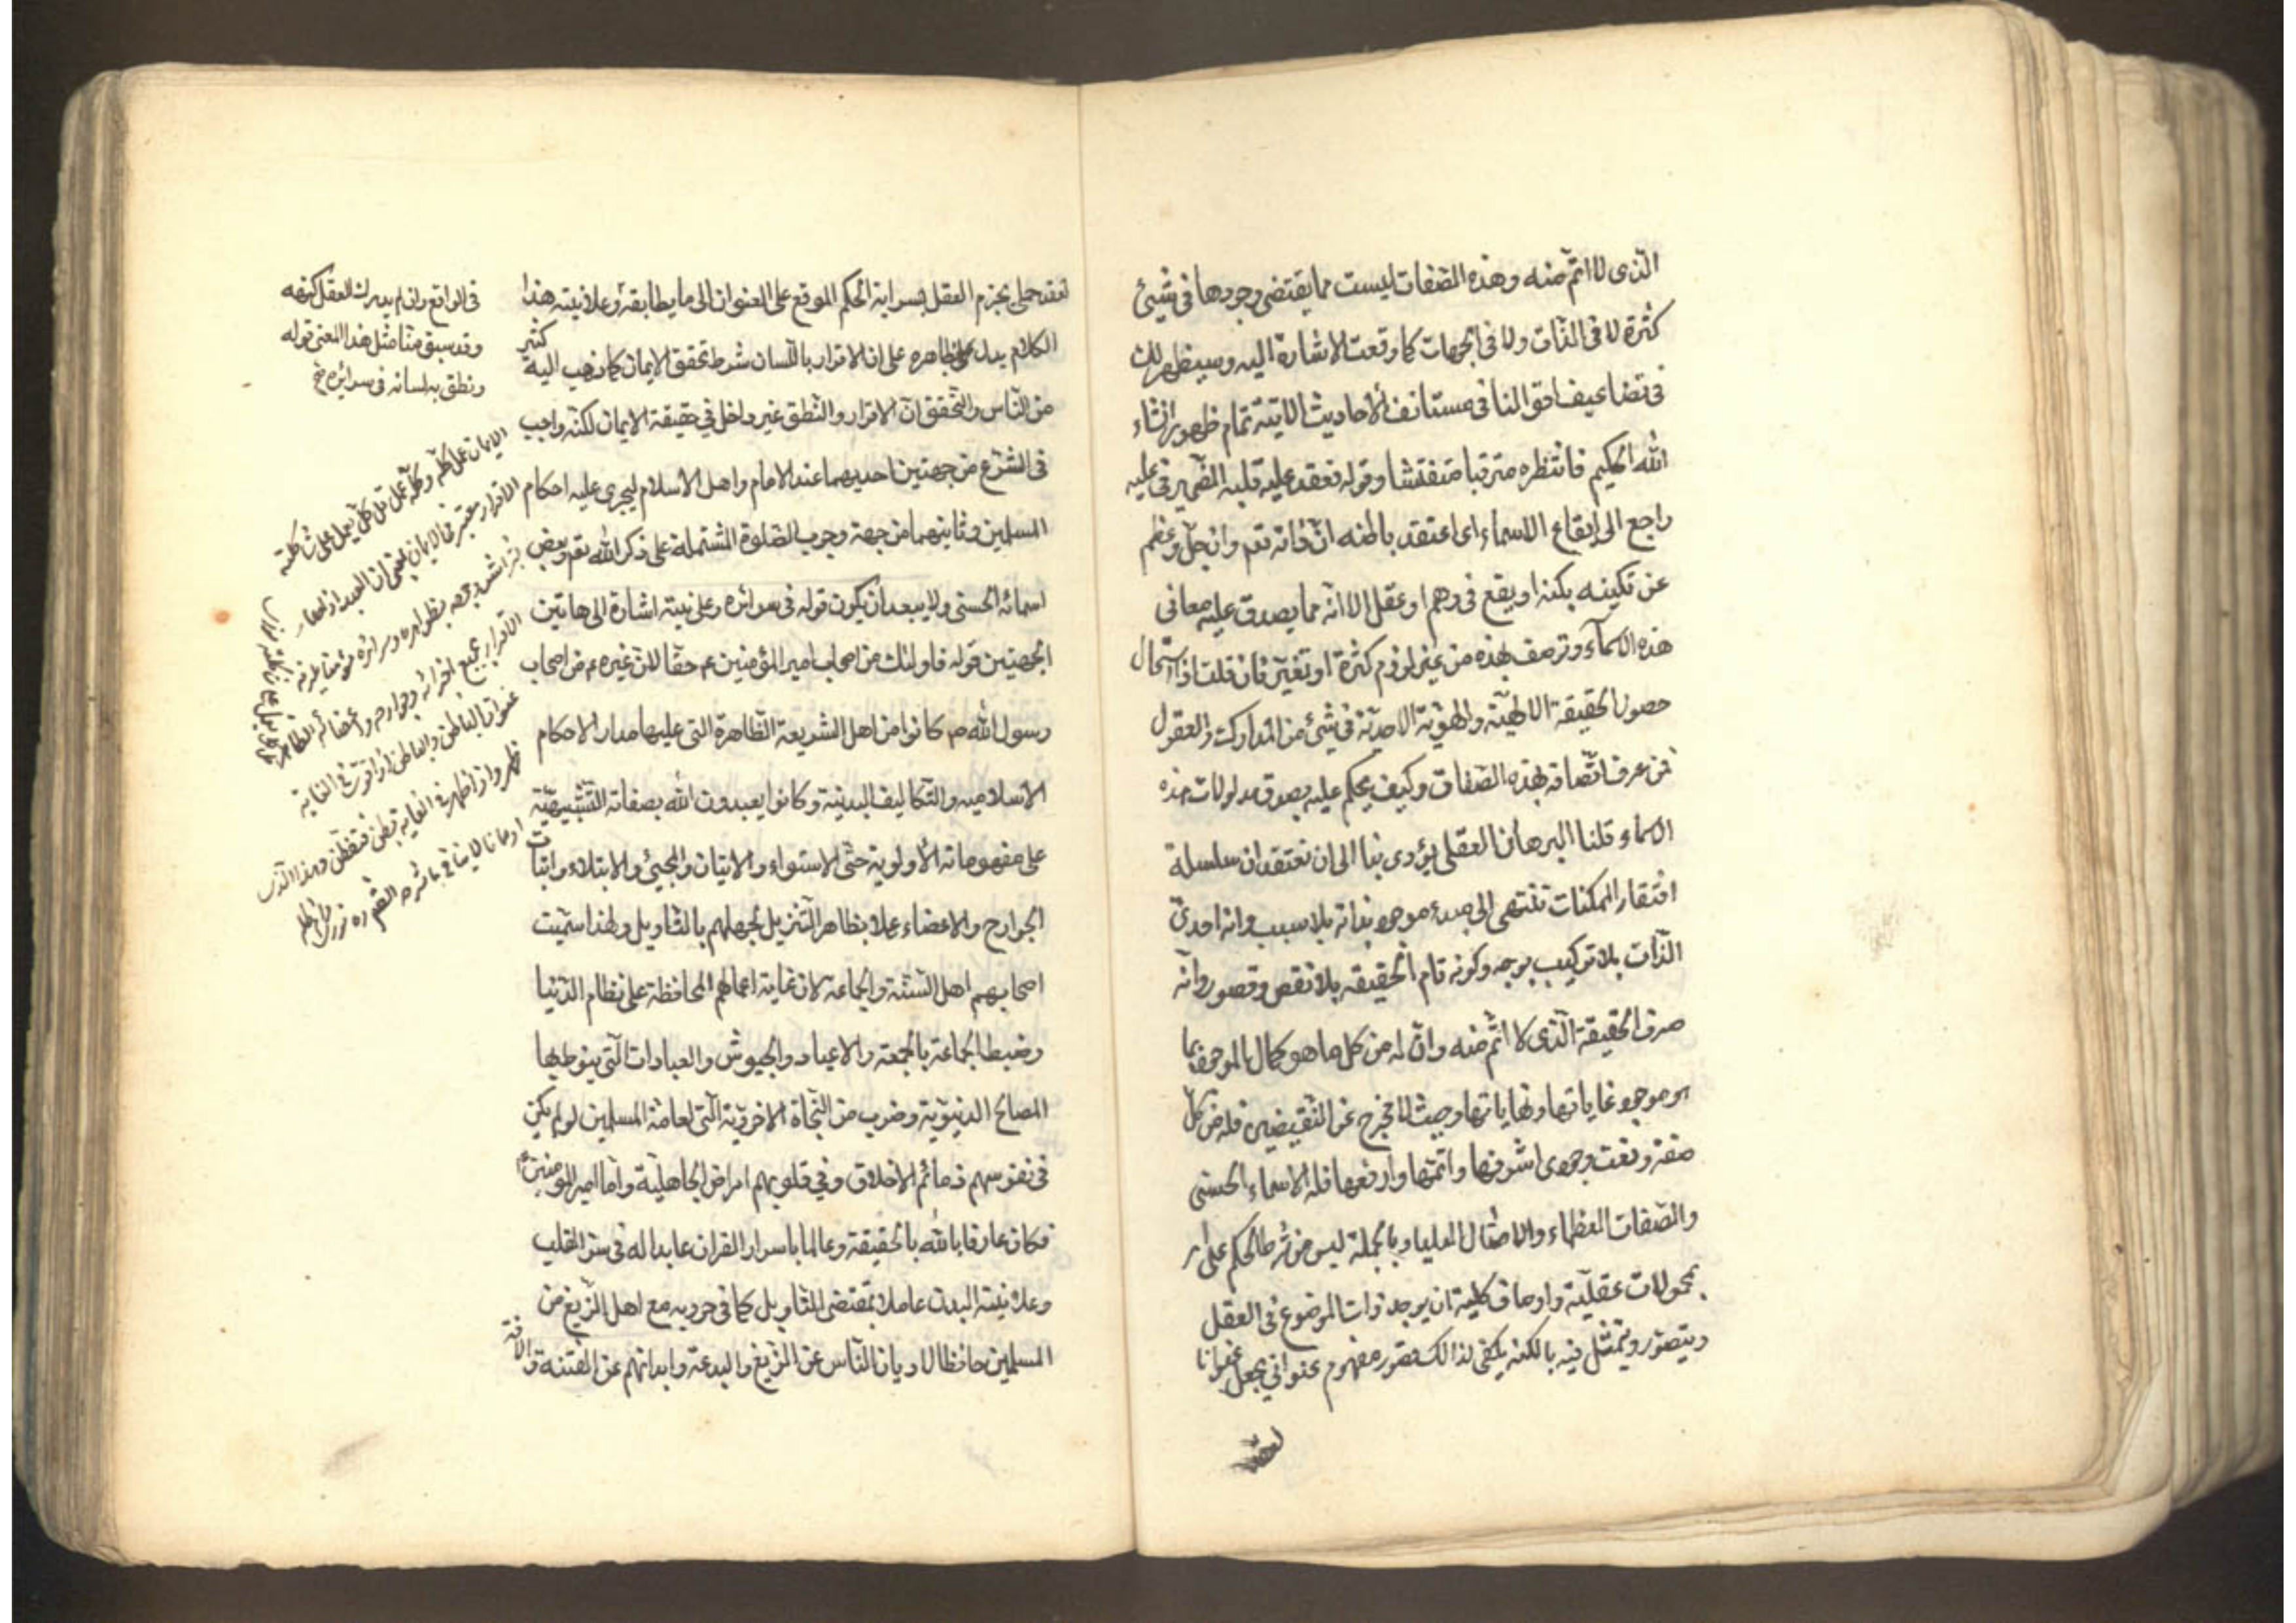 الذى لا اتم منه وهذه الصفات ليست مما يقتضى وجودها فى شيئ
كثرة لا فى الذات ولا فى الجهات كما وقعت الاشارة اليه وسيظهر لك
فى تضاعيف اقوالنا فى مستانف الأحاديث الاتية تمام ظهور انشاء
الله الحكيم فانتظره مترقبا متفتشا وقوله فعقد عليه قلبه الضمير فى عليه
راجع الى ايقاع الاسماء اى اعتقد باطنه ان ذاته تعم وان جل وعظم
عن تكينه بكنه او يقع فى وهم او عقل الا انه مما يصدق عليه معانى
هذه الاسماء وتوصف بهذه من غير لزوم كثرة او تغير فان قلت فاذا استحال
حصول الحقيقة الالهية والهوية الاحدية فى شيئ من المدارك والعقول
فمن عرف اتصافه بهذه الصفات وكيف يحكم عليه بصدق مدلولات هذه
الاسماء قلنا البرهان العقلى يؤدى بنا الى ان نعتقد ان سلسلة
افتقار الممكنات تنتهى الى مبدء موجود بذاته بلا سبب وانه احدى
الذات بلا تركيب بوجه وكونه تام الحقيقه بلا نقص وقصور وانه
صرف الحقيقة الذى لا اتم منه وان له من كل ما هو كمال للموجود بما
هو موجود غاياتها ونهاياتها وحيث لا مخرج عن النقيضين فله من كل
صفة ونعت وجودى اشرفها واتمها وارفعها فله الاسماء الحسنى
والصفات العظماء والامثال العليا وبالجملة ليس من شرط الحكم على امر
بمحمولات عقلية واوصاف كلية ان يوجد ذات الموضوع فى العقل
ويتصور ويتمثل فيه بالكنه يكفى لذالك تصور مفهوم عنوانى يجعل عنوانا
لعقد
لعقد حملى يجزم العقل بسراية الحكم الموقع على العنوان الى ما يطابقه وعلانيته هذا
الكلام يدل بظاهره على ان الاقرار باللسان شرط تحقق الايمان كما ذهب اليه كثير
من الناس والتحقق ان الاقرار والنطق غير داخل في حقيقة الايمان لكنه واجب
فى الشرع من جهتين احديهما عند الامام واهل الاسلام ليجرى عليه احكام
المسلمين وثانيهما من جهة وجوب الصلوة المشتملة على ذكر الله تعم وبعض
اسمائه الحسنى ولا يبعد ان يكون قوله فى سرائره وعلانيته اشارة الى هاتين
الجهتين قوله فاولئك من اصحاب امير المؤمنين عم حقا لان غيره عم من اصحاب
رسول الله ص كانوا من اهل الشريعة الظاهرة التى عليها مدار الاحكام
الاسلاميه والتكاليف البدنية وكانوا يعبدون الله بصفاته التشبيهية
على مفهوماته الأولوية حتى الاستواء والاتيان والمجيئ والابتلاء واثبات
الجوارح والاعضاء عملا بظاهر التنزيل لجهلهم بالتاويل ولهذا سميت
اصحابهم اهل السنة والجماعة لان غاية اعمالهم المحافظة على نظام الدنيا
وضبط الجماعة بالجمعة والاعياد والجيوش والعبادات التى ينوط بها
المصالح الدنيوية وضرب من النجاة الاخروية التى لعامة المسلمين لو لم يكن
فى نفوسهم ذمائم الاخلاق وفي قلوبهم امراض الجاهلية واما امير المومنين عم
فكان عارفا بالله بالحقيقة وعالما باسرار القران عابدا له فى سر القلب
وعلانية البدن عاملا بمقتضى التاويل كما فى حروبه مع اهل الزيغ من
المسلمين حافظا لاديان الناس عن الزيغ والبدعة وابدانهم عن الفتنة والافة
فى الواقع وان لم يدرك العقل كنهه
وقد سبق منا مثل هذا المعنى قوله
ونطق به لسانه فى سرائره خ
الايمان عمل كله وكله عمل قل كل يعمل على شاكلته
الاقرار معتبر فى الايمان بمعنى ان العبد